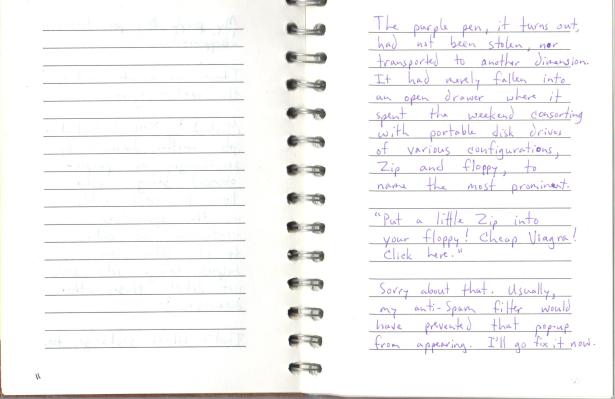 The purple pen, it turns out,
had not been stolen, nor
transported to another dimension.
It had merely fallen into
an open drawer where it
spent the weekend consorting
with portable disk drives
of various configurations,
Zip and floppy, to
name the most prominent.
"Put a little Zip into
your floppy! Cheap Viagra!
Click here."
Sorry about that. Usually,
my anti-spam filter would
have prevented that pop-up
from appearing. I'll go fix it now.